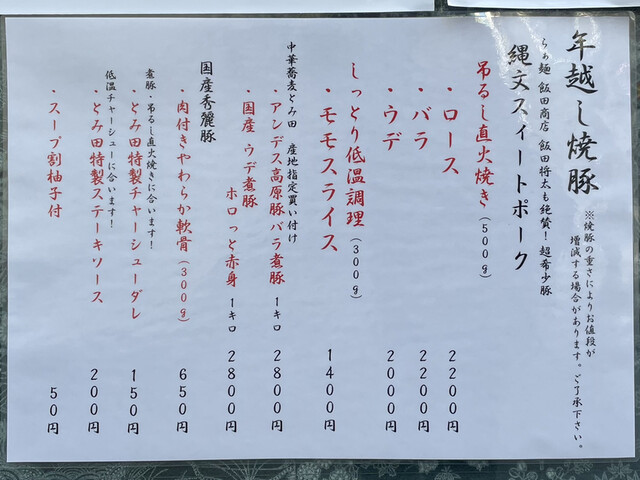 年越し焼豚
※焼豚の重さによりお値段が
増減する場合があります。ご了承下さい。
らぁ麺 飯田商店 飯田将太も絶賛！超希少豚
縄文スィートポーク
吊るし直火焼き（500g）
・ロース 2200円
・バラ 2200円
・ウデ 2000円
しっとり低温調理（300g）
・モモスライス 1400円
中華蕎麦とみ田 産地指定買い付け
・アンデス高原豚バラ煮豚 1キロ 2800円
・国産 ウデ煮豚
ホロっと赤身 1キロ 2800円
国産秀麗豚
・肉付きやわらか軟骨（300g） 650円
煮豚・吊るし直火焼きに合います！
・とみ田特製チャーシューダレ 150円
低温チャーシューに合います！
・とみ田特製ステーキソース 200円
・スープ割柚子付 50円